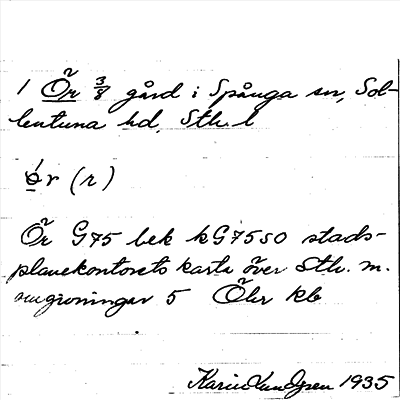 1 Ör 3/8 gård i Spånga sn, Sol-
lentuna hd, Sth. l
ǿr (r)
Ör G75 bek kG75SO stads-
planekontorets karta över Sth. m.
omgivningar 5 Öhr kb
Karin Lundgren 1935